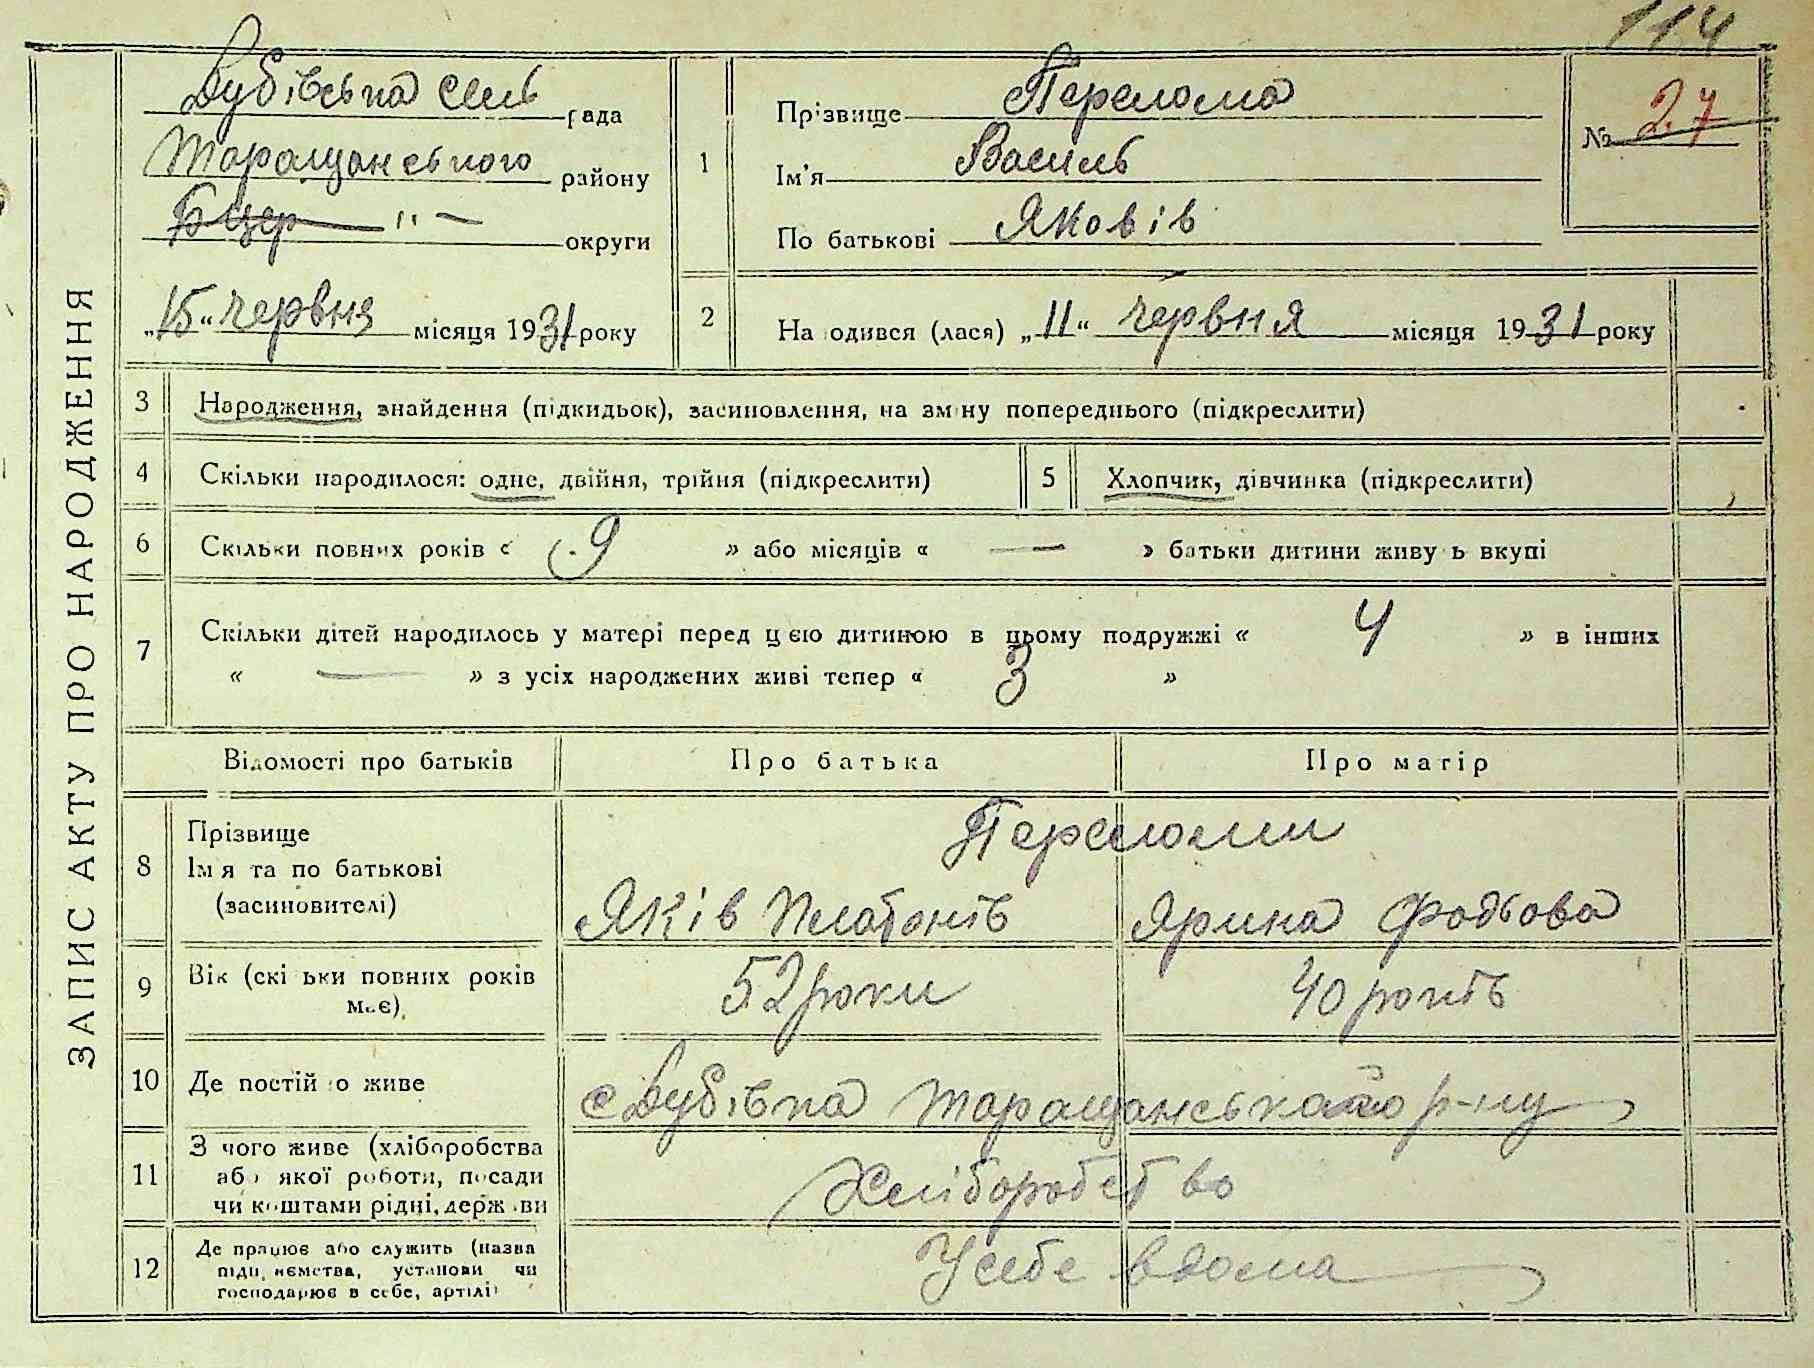 114
ЗАПИС АКТУ ПРО НАРОДЖЕННЯ
Дубівська сіль рада
Таращанського району
Б цер " — округи
„15“ червня місяця 1931 року
1
Прізвище Перелома
Ім'я Василь
По батькові Яковів
№ 27
2
Народився (лася) „11“ червня місяця 1931 року
3 Народження, знайдення (підкидьок), засиновлення, на зміну попереднього (підкреслити)
4 Скільки народилося: одне, двійня, трійня (підкреслити) 5 Хлопчик, дівчинка (підкреслити)
6 Скільки повних років « 9 » або місяців « — » батьки дитини живуть вкупі
7 Скільки дітей народилось у матері перед цією дитиною в цьому подружжі « 4 » в інших
« — » з усіх народжених живі тепер « 3 »
Відомості про батьків Про батька Про матір
8 Прізвище
Ім'я та по батькові
(засиновителі)
Переломи
Яків Платонів Ярина Фадьова
9 Вік (скільки повних років
має)
52 роки 40 років
10 Де постійно живе с Дубівка Таращанського р-ну
11 З чого живе (хліборобства
або якої роботи, посади
чи коштами рідні, держави
Хліборобство
12 Де працює або служить (назва
підприємства, установи чи
господарює в себе, артілі)
У себе вдома